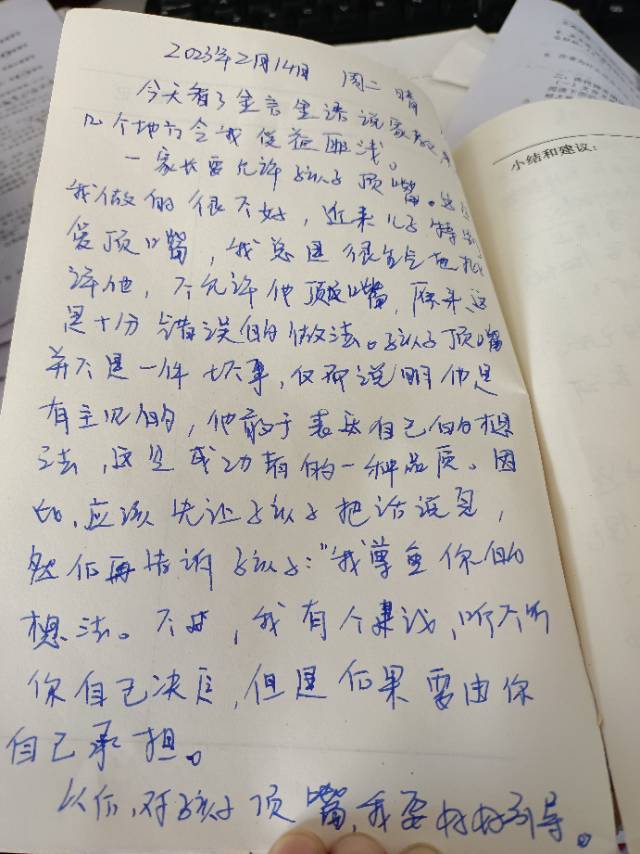 2023年2月14日 周二 晴
今天看了金言金语说家教,有
几个地方令我受益匪浅。
一家长要允许孩子顶嘴。这点
我做的很不好,近来儿子特别
爱顶嘴,我总是很生气地批
评他,不允许他顶嘴,原来这
是十分错误的做法。孩子顶嘴
并不是一件坏事,仅说明他是
有主见的,他敢于表达自己的想
法,这是成功者的一种品质。因
此,应该先让孩子把话说完,
然后再告诉孩子:"我尊重你的
想法。不过,我有个建议,听不听
你自己决定,但是后果要由你
自己承担。
以后,对孩子顶嘴,我要好好引导。
小结和建议: